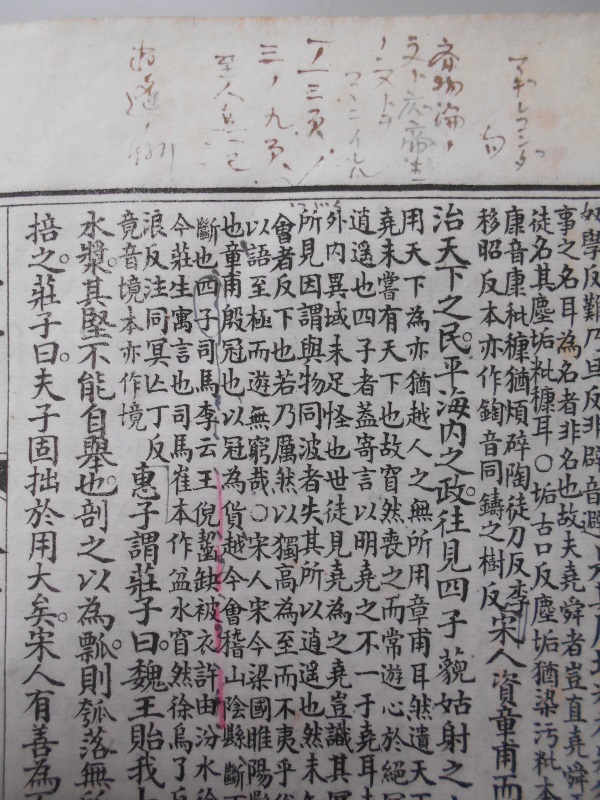 マギレコンダ
句
斎物論ノ
文ト応帝王
ノ二文トヨ
コヽニイレル
三ノ九頁
至人無己
逍遥ノ
事之名耳為名者非名也故夫堯舜者豈直堯舜
徒名其塵垢粃糠耳○垢古口反塵垢猶染汚粃本
康音康粃糠猶煩碎陶徒刀反李
移昭反本亦作鋾音同鑄之樹反
宋人資章甫而
治天下之民。平海内之政。往見四子藐姑射之
用天下為亦猶越人之無所用章甫耳然遺天下
堯未嘗有天下也故窅然喪之而常遊心於絕冥
逍遙也四子者蓋寄言以明堯之不一于堯耳
外内異域未足怪也世徒見堯為之堯豈識其冥
所見因謂與物同波者失其所以逍遙也然未
會者反下也若乃厲然以獨高為至而不夷乎俗
以語至極而遊無窮哉○宋人宋今梁國睢陽縣
也章甫殷冠也以冠為貨越今會稽山陰縣斷
斷也四子司馬李云王倪齧缺被衣許由汾水徐
今莊生寓言也司馬崔本作盆水窅然徐烏了反
浪反注同冥亡丁反
竟音境本亦作境
惠子謂莊子曰。魏王貽我大
水漿。其堅不能自舉也。剖之以為瓢。則瓠落無所
掊之。莊子曰。夫子固拙於用大矣。宋人有善為